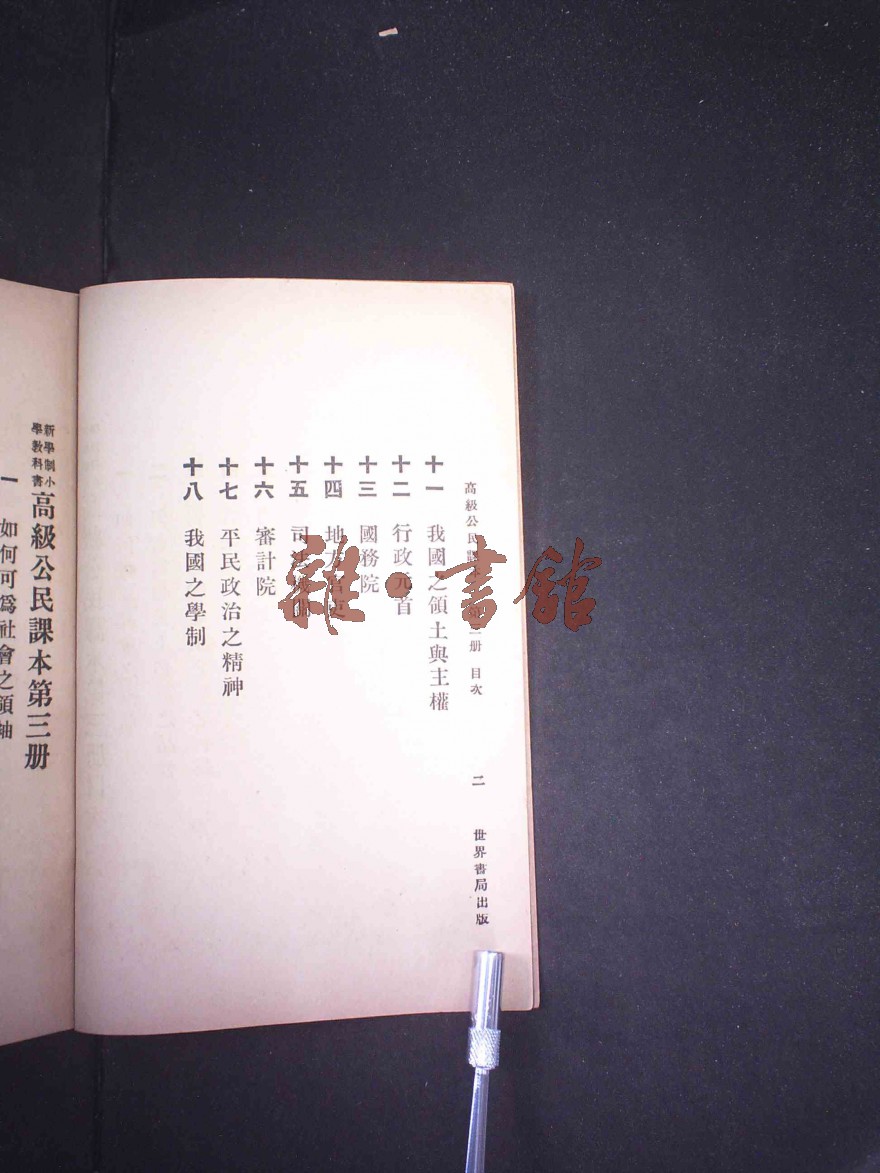 高級公民課 第三册 目次 二 世界書局出版
十一 我國之領土與主權
十二 行政元首
十三 國務院
十四 地方官吏
十五 司法
十六 審計院
十七 平民政治之精神
十八 我國之學制
新學制小學教科書 高級公民課本第三册
一 如何可爲社會之領袖
雜・書館